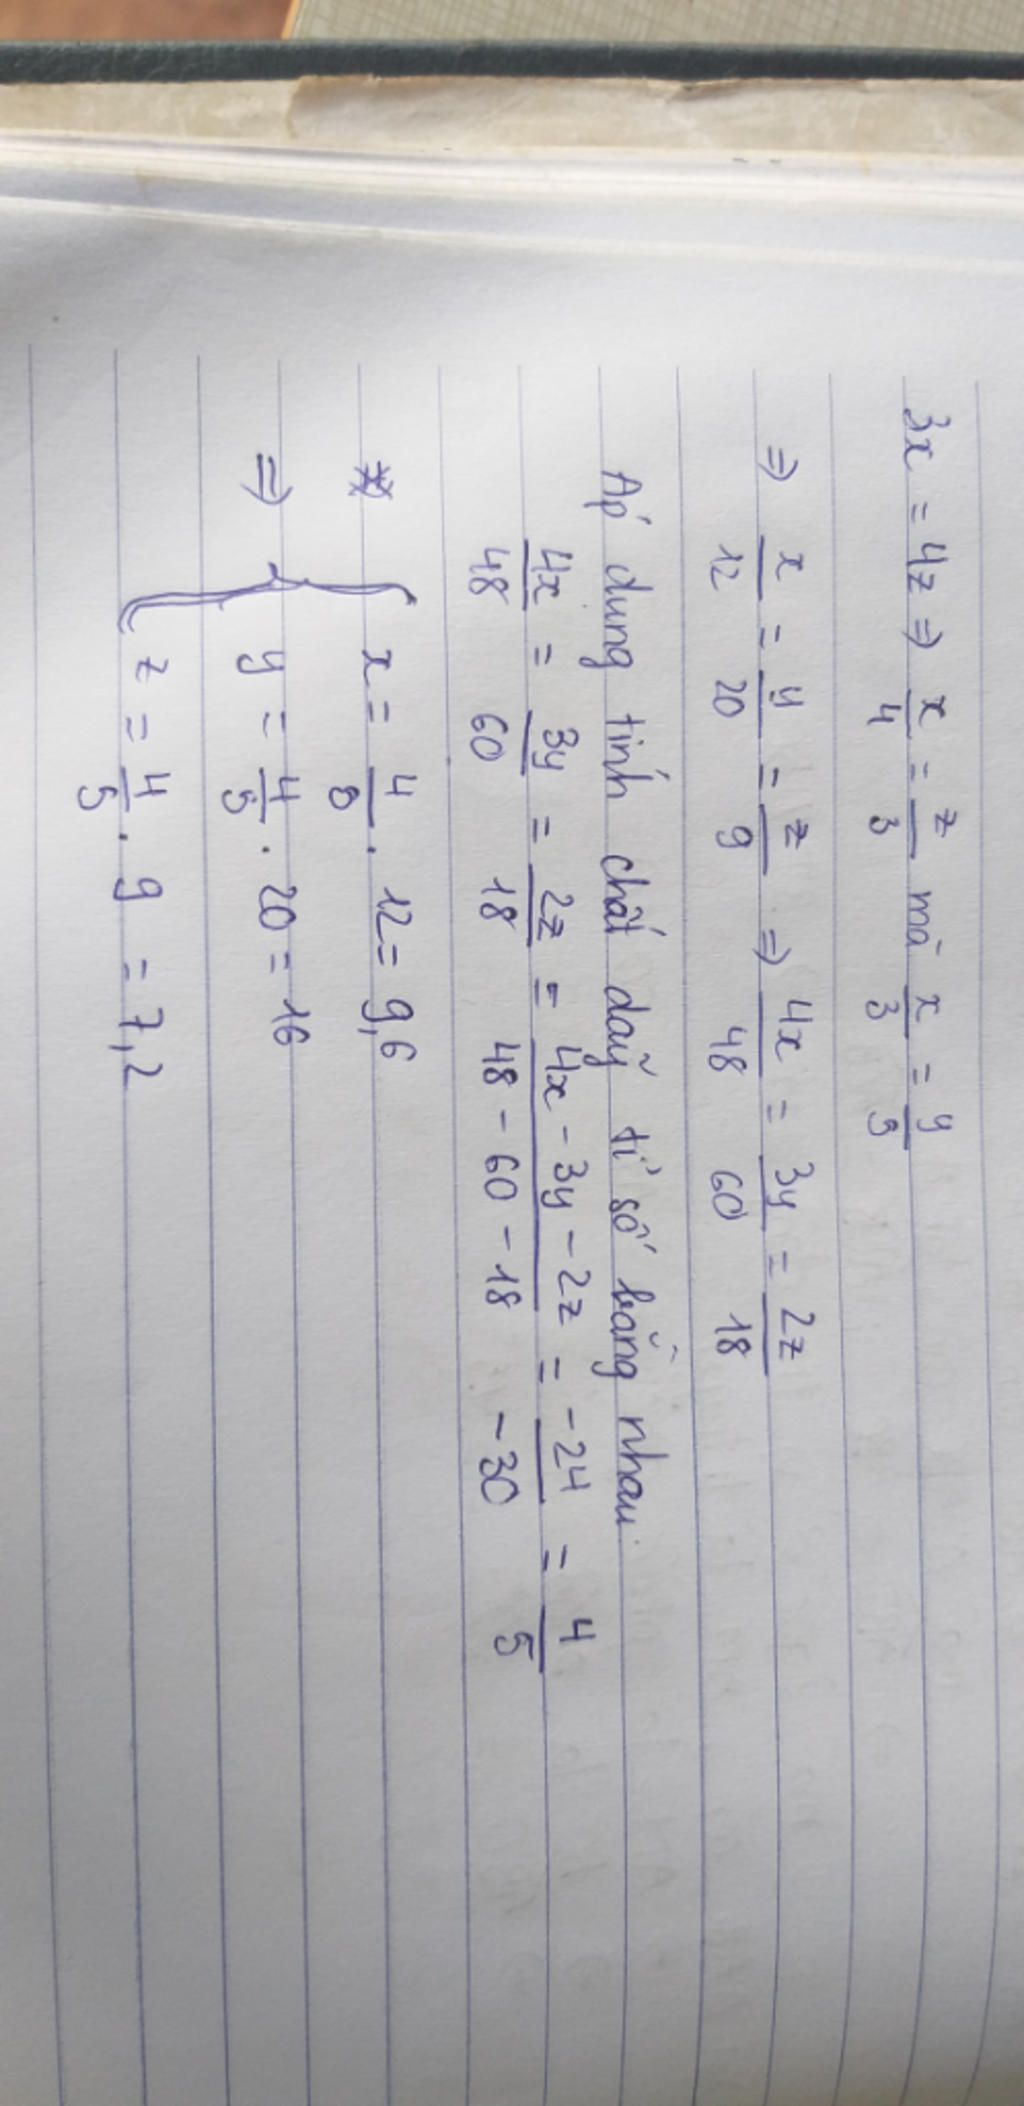 3x = 4z ⇒ x/4 = z/3 mà x/3 = y/5
⇒ x/12 = y/20 = z/9 ⇒ 4x/48 = 3y/60 = 2z/18
Áp dụng tính chất dãy tỉ số bằng nhau
4x/48 = 3y/60 = 2z/18 = 4x - 3y - 2z/48 - 60 - 18 = -24/-30 = 4/5
x = 4/5 . 12 = 9,6
⇒ { y = 4/5 . 20 = 16
z = 4/5 . 9 = 7,2